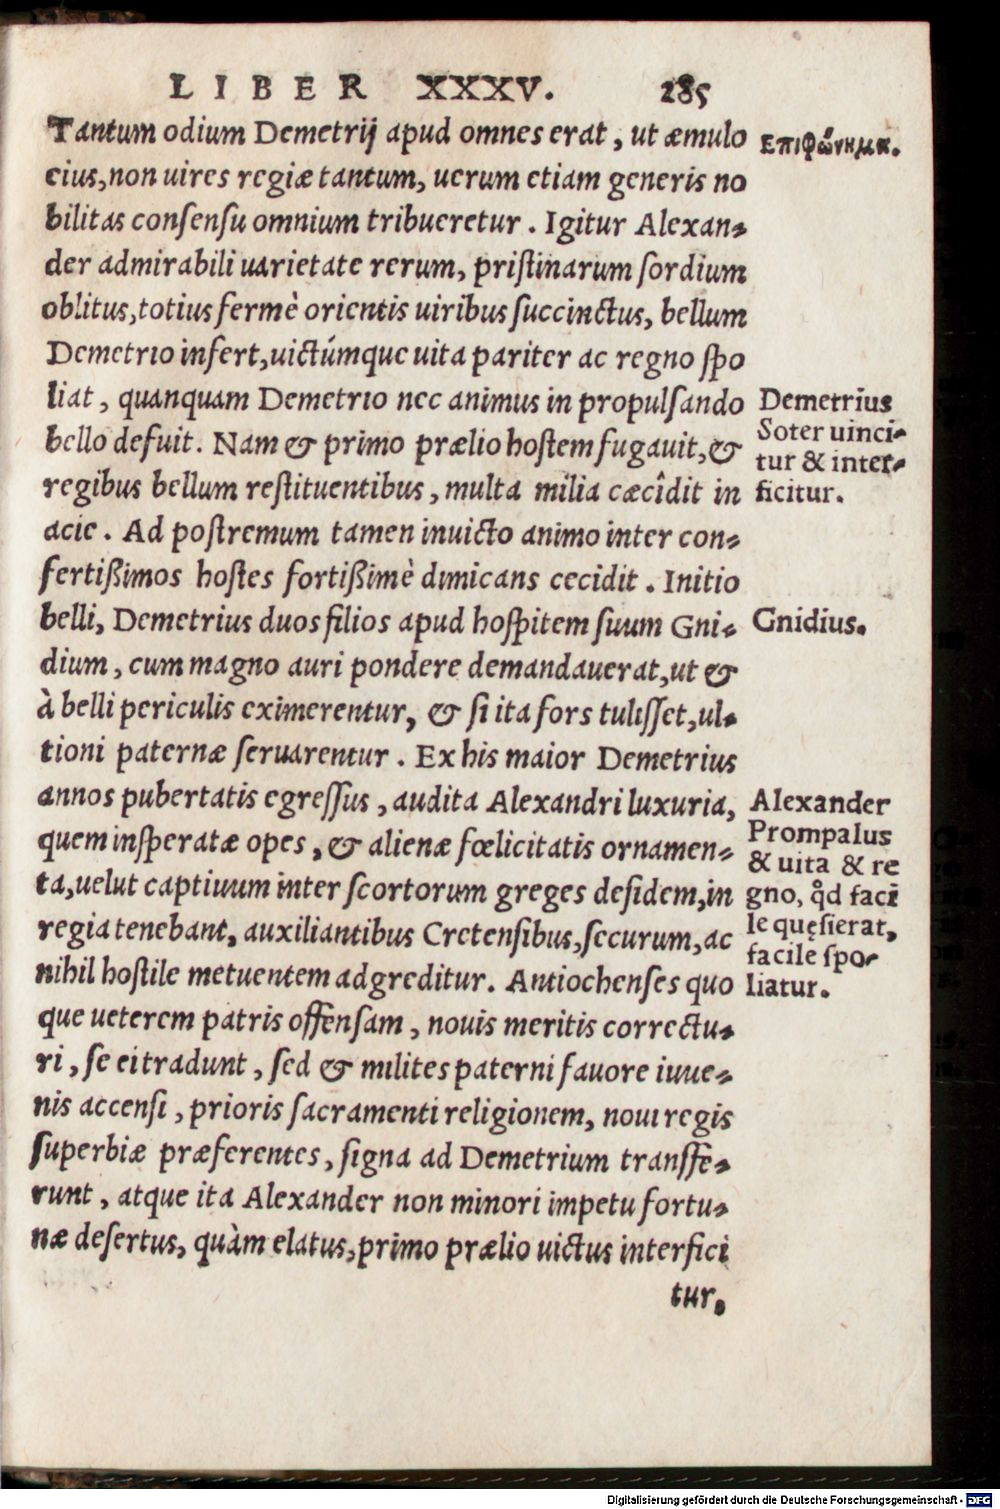 LIBER XXXV. 285
Tantum odium Demetrij apud omnes erat, ut æmulo
eius, non uires regiæ tantum, uerum etiam generis no
bilitas consensu omnium tribueretur. Igitur Alexan-
der admirabili uarietate rerum, pristinarum sordium
oblitus, totius fermè orientis uiribus succinctus, bellum
Demetrio infert, uictúmque uita pariter ac regno spo
liat, quanquam Demetrio nec animus in propulsando
bello defuit. Nam & primo prælio hostem fugauit, &
regibus bellum restituentibus, multa milia cæcîdit in
acie. Ad postremum tamen inuicto animo inter con-
fertißimos hostes fortißimè dimicans cecidit. Initio
belli, Demetrius duos filios apud hospitem suum Gni-
dium, cum magno auri pondere demandauerat, ut &
à belli periculis eximerentur, & si ita fors tulisset, ul-
tioni paternæ seruarentur. Ex his maior Demetrius
annos pubertatis egressus, audita Alexandri luxuria,
quem insperatæ opes, & alienæ fœlicitatis ornamen-
ta, uelut captiuum inter scortorum greges desidem, in
regia tenebant, auxiliantibus Cretensibus, securum, ac
nihil hostile metuentem adgreditur. Antiochenses quo
que ueterem patris offensam, nouis meritis correctu-
ri, se ei tradunt, sed & milites paterni fauore iuue-
nis accensi, prioris sacramenti religionem, noui regis
superbiæ præferentes, signa ad Demetrium transfe-
runt, atque ita Alexander non minori impetu fortu-
næ desertus, quàm elatus, primo prælio uictus interfici
tur.
Επιφώνημα.
Demetrius
Soter uinci-
tur & inter-
ficitur.
Gnidius.
Alexander
Prompalus
& uita & re
gno, qd̊ faci
le quęsierat,
facile spo-
liatur.
Digitalisierung gefördert durch die Deutsche Forschungsgemeinschaft - DFG